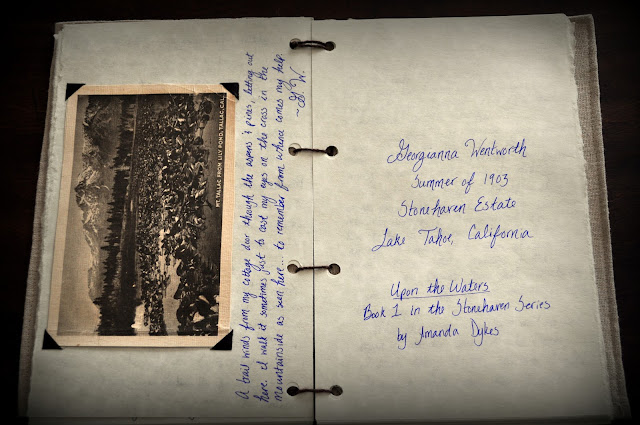 MT. TALLAC FROM LILY POND, TALLAC, CAL
A trail winds from my cottage door through the aspens & pines, letting out
here. I walk it sometimes just to cast my eyes on the cross in the
mountainside as seen here... to remember from whence comes my help.
~G.W.
Georgianna Wentworth
Summer of 1903
Stonehaven Estate
Lake Tahoe, California
Upon the Waters
Book 1 in the Stonehaven Series
by Amanda Dykes